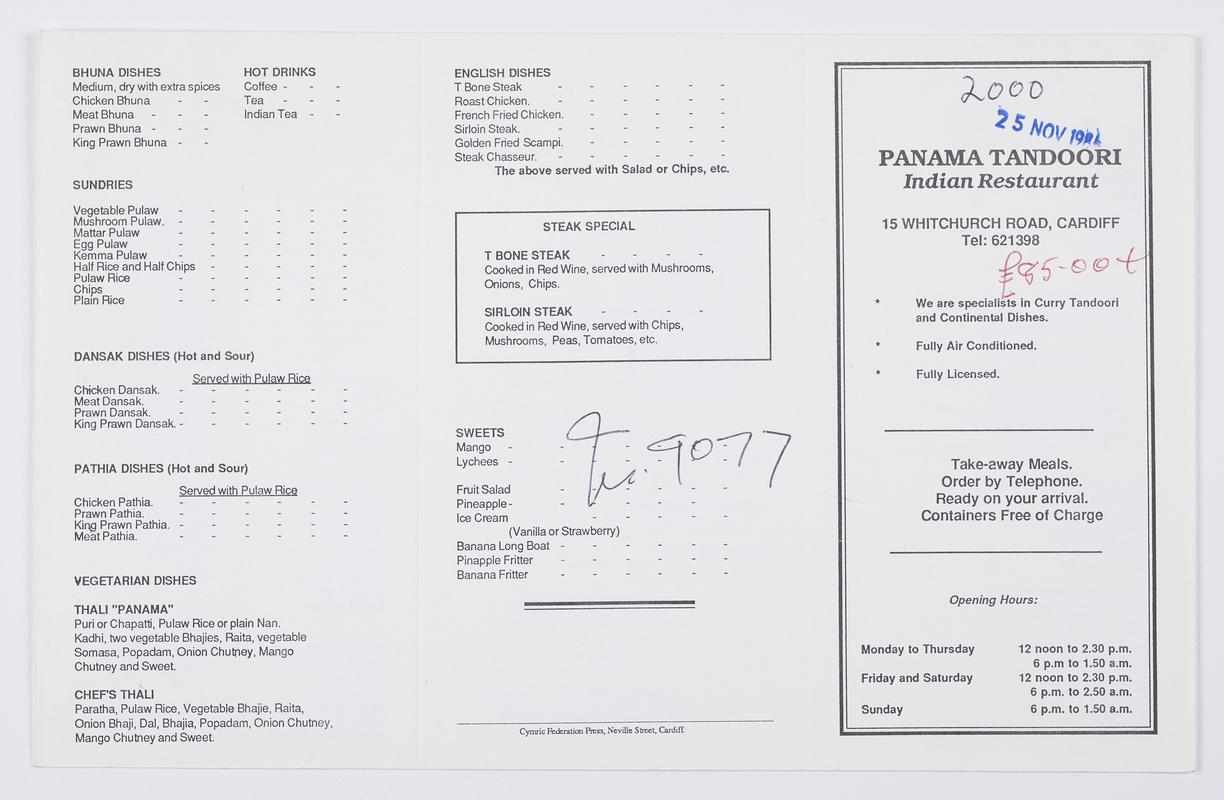 BHUNA DISHES
Medium, dry with extra spices
Chicken Bhuna - -
Meat Bhuna - - -
Prawn Bhuna - - -
King Prawn Bhuna - -
HOT DRINKS
Coffee - - -
Tea - - -
Indian Tea - -
SUNDRIES
Vegetable Pulaw - - - - - -
Mushroom Pulaw. - - - - - -
Mattar Pulaw - - - - - -
Egg Pulaw - - - - - -
Kemma Pulaw - - - - - -
Half Rice and Half Chips - - - - -
Pulaw Rice - - - - - -
Chips - - - - - -
Plain Rice - - - - - -
DANSAK DISHES (Hot and Sour)
Served with Pulaw Rice
Chicken Dansak. - - - - - -
Meat Dansak. - - - - - -
Prawn Dansak. - - - - - -
King Prawn Dansak. - - - - - -
PATHIA DISHES (Hot and Sour)
Served with Pulaw Rice
Chicken Pathia. - - - - - -
Prawn Pathia. - - - - - -
King Prawn Pathia. - - - - - -
Meat Pathia. - - - - - -
VEGETARIAN DISHES
THALI "PANAMA"
Puri or Chapatti, Pulaw Rice or plain Nan.
Kadhi, two vegetable Bhajies, Raita, vegetable
Somasa, Popadam, Onion Chutney, Mango
Chutney and Sweet.
CHEF'S THALI
Paratha, Pulaw Rice, Vegetable Bhajie, Raita,
Onion Bhaji, Dal, Bhajia, Popadam, Onion Chutney,
Mango Chutney and Sweet.
ENGLISH DISHES
T Bone Steak - - - - - -
Roast Chicken. - - - - - -
French Fried Chicken. - - - - -
Sirloin Steak. - - - - - -
Golden Fried Scampi. - - - - -
Steak Chasseur. - - - - - -
The above served with Salad or Chips, etc.
STEAK SPECIAL
T BONE STEAK - - - -
Cooked in Red Wine, served with Mushrooms,
Onions, Chips.
SIRLOIN STEAK - - - -
Cooked in Red Wine, served with Chips,
Mushrooms, Peas, Tomatoes, etc.
SWEETS
Mango - - - - - - -
Lychees - - - - - - -
9077
Fruit Salad - - - - - -
Pineapple - - - - - - -
Ice Cream - - - - -
(Vanilla or Strawberry)
Banana Long Boat - - - - - -
Pinapple Fritter - - - - - -
Banana Fritter - - - - - -
Cymric Federation Press, Neville Street, Cardiff.
2000
25 NOV
PANAMA TANDOORI
Indian Restaurant
15 WHITCHURCH ROAD, CARDIFF
Tel: 621398
£85-00+
* We are specialists in Curry Tandoori
and Continental Dishes.
* Fully Air Conditioned.
* Fully Licensed.
Take-away Meals.
Order by Telephone.
Ready on your arrival.
Containers Free of Charge
Opening Hours:
Monday to Thursday 12 noon to 2.30 p.m.
6 p.m to 1.50 a.m.
Friday and Saturday 12 noon to 2.30 p.m.
6 p.m. to 2.50 a.m.
Sunday 6 p.m. to 1.50 a.m.